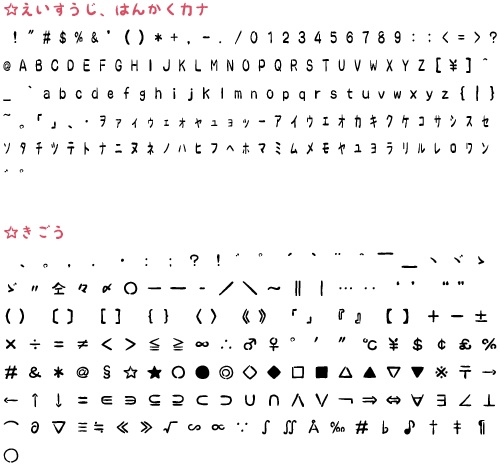 ☆えいすうじ、はんかくカナ
!"#$%&'()*+,-./0123456789::<=>?
@ABCDEFGHIJKLMNOPQRSTUVWXYZ[¥]^
_`abcdefghijklmnopqrstuvwxyz{|}
~。「」、・ヲァィゥェォャュョッーアイウエオカキクケコサシスセ
ソタチツテトナニヌネノハヒフヘホマミムメモヤユヨラリルレロワン
゛゜
☆きごう
、。，．・：：？！゛゜´｀¨＾￣＿ヽヾゝ
ゞ〃仝々〆〇ー―‐／＼～∥｜…‥‘’“”
（）〔〕［］｛｝〈〉《》「」『』【】＋－±
×÷＝≠＜＞≦≧∞∴♂♀°′″℃￥＄￠￡％
＃＆＊＠§☆★○●◎◇◆□■△▲▽▼※〒→
←↑↓〓∈∋⊆⊇⊂⊃∪∩∧∨￢⇒⇔∀∃∠⊥
⌒∂∇≡≒≪≫√∽∝∵∫∬Å‰♯♭♪†‡¶
◯